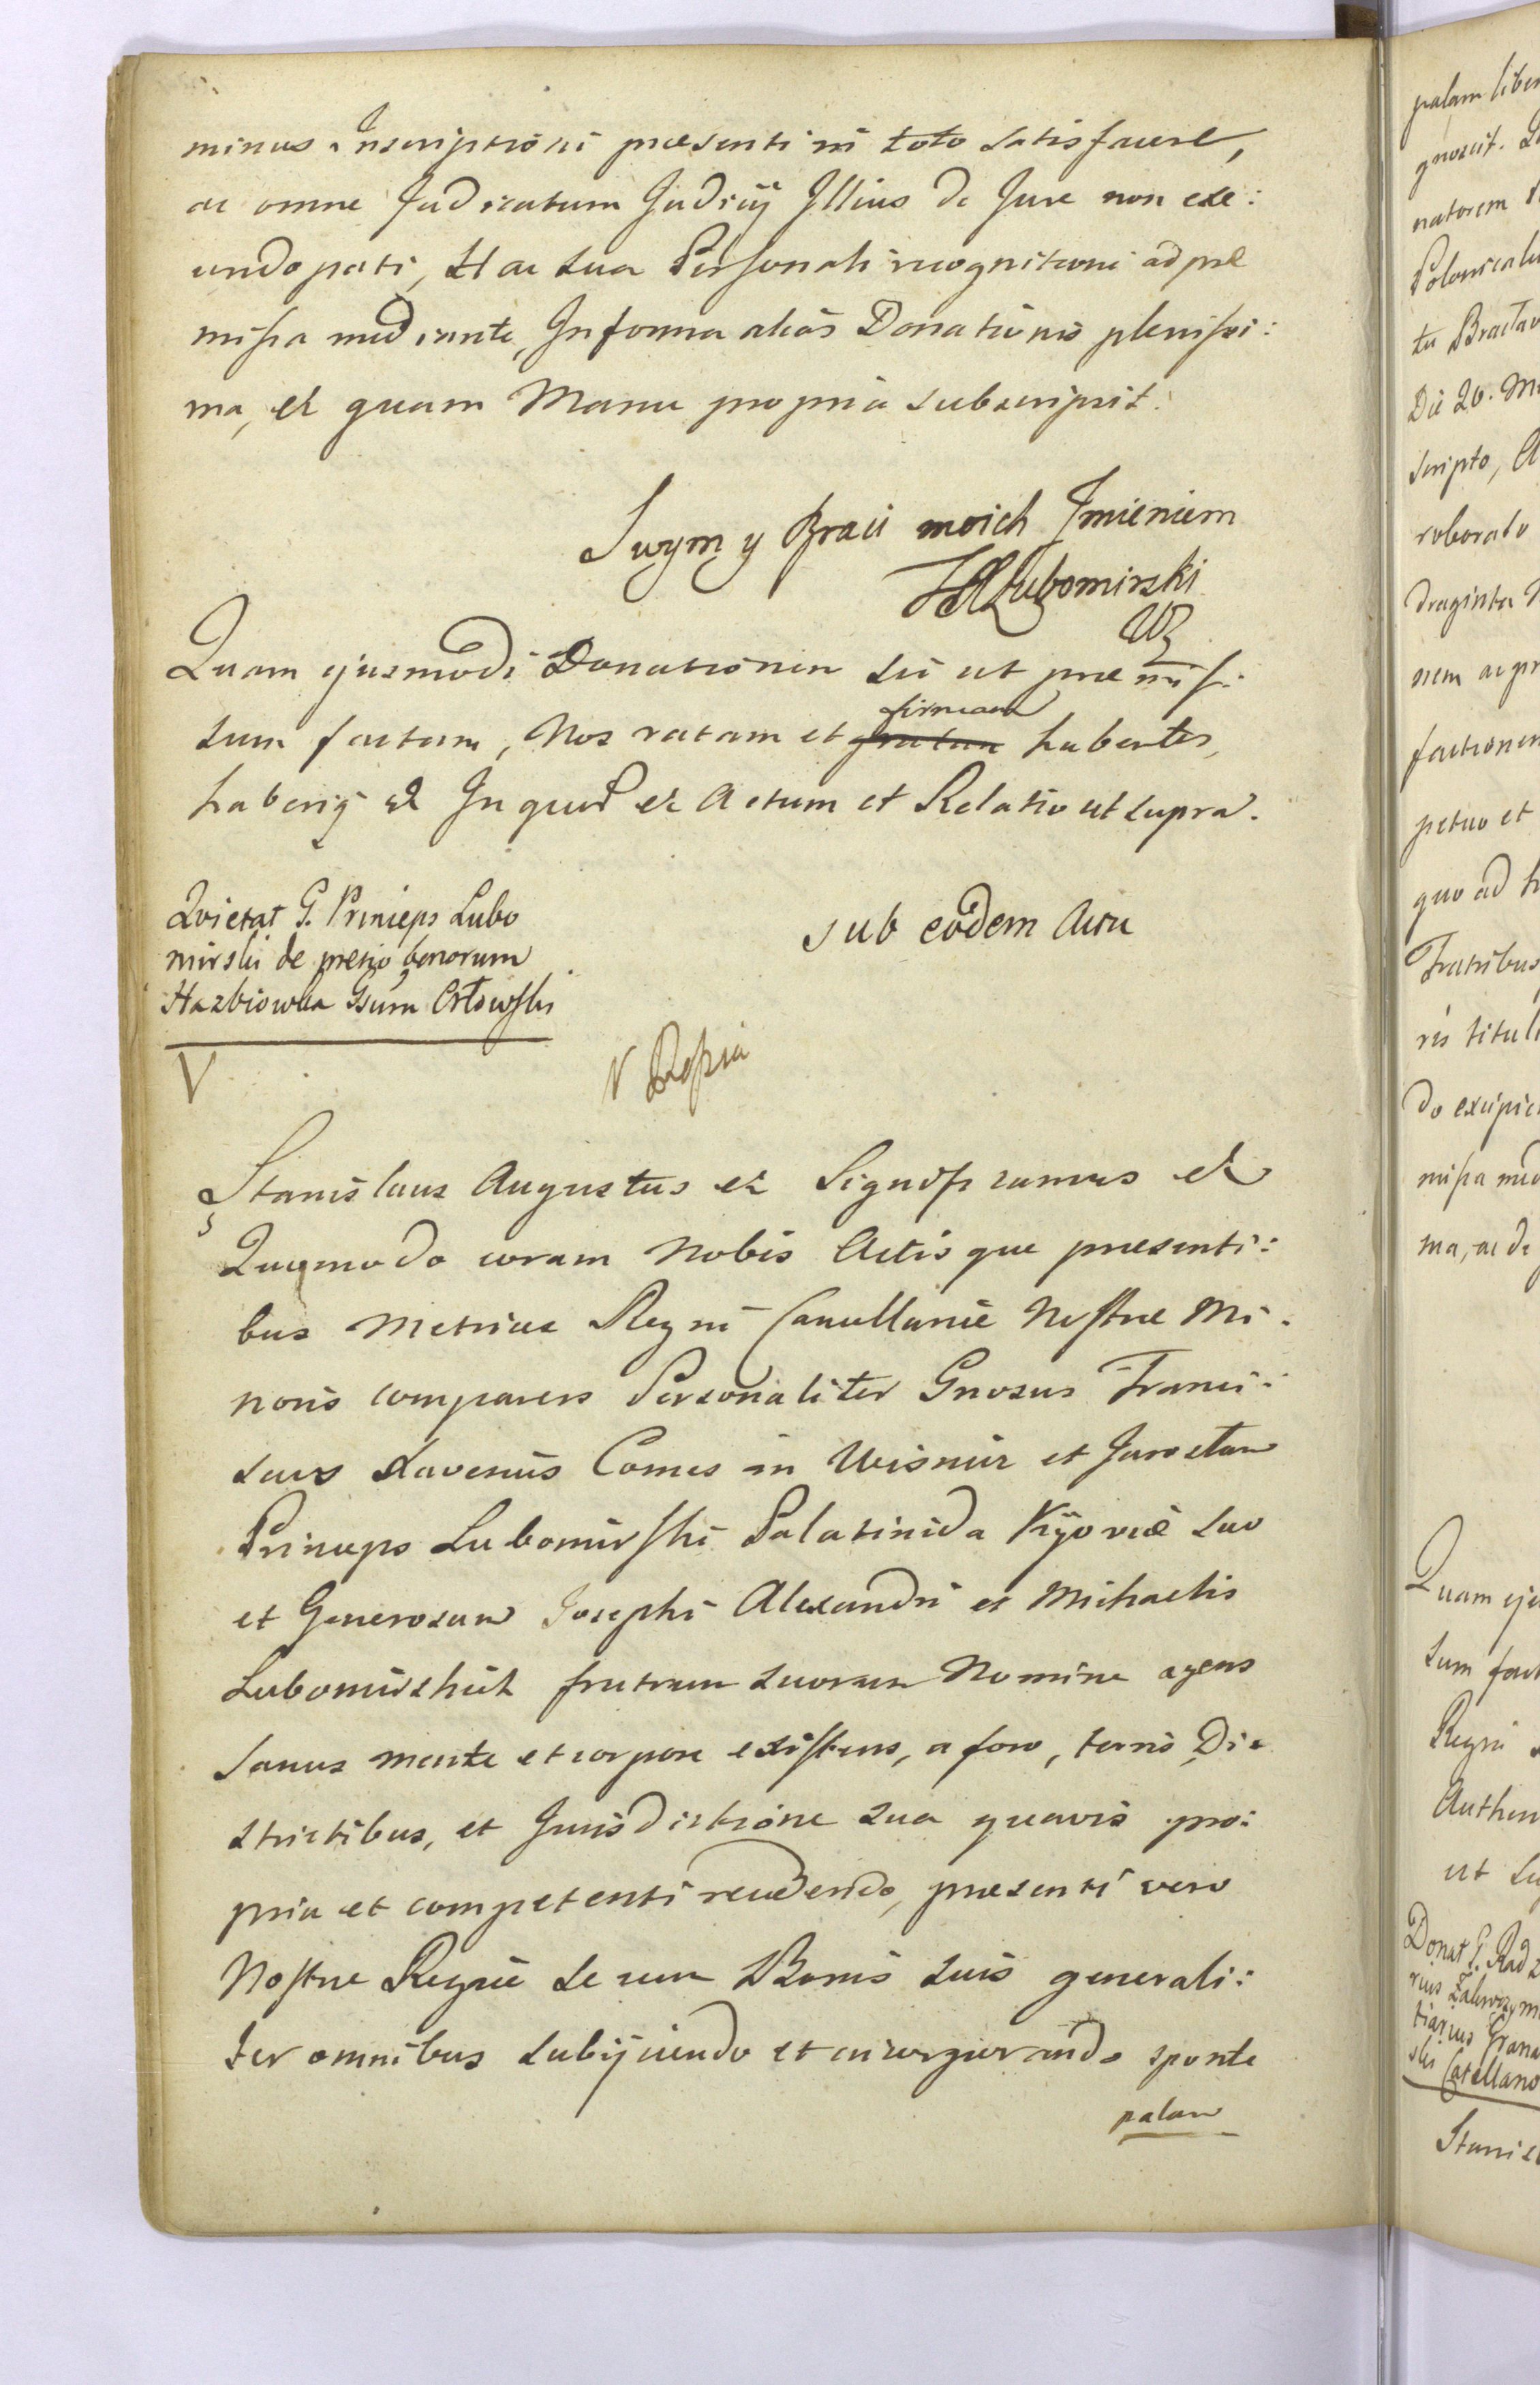 minus Inscriptioni præsenti in toto satisfacere,
ac omne Judicatum Judicij Illius de Jure non exe:
undo pati, Hac sua Personali recognitione ad præ
missa mediante, In forma alias Donationis plenissi:
ma, et quam Manu propria subscripsit.
Swym y Braci moich Jmieniem
Lubomirski
Quam ejusmodi Donationem sic ut præmis:
sum factam, Nos ratam et gratam firmam habentes,
haberiq et In quor et Actum et Relatio ut supra.
Qvietat G. Princeps Lubo
mirski de pretio bonorum
Hazbiowka Gsum Orłowski
sub eodem Actu
V
V Kopia
Stanislaus Augustus et Significamus et
Quomodo coram Nobis Actis que præsenti:
bus Metrices Regni Cancellariæ Nostræ Mi:
noris comparens Personaliter Gnosus Franci:
scus Xaverius Comes in Wisnicz et Jarosław
Princeps Lubomirski Palatinida Kijoviæ suo
et Generosum Josephi Alexandri et Michaelis
Lubomirskich fratrum suorum Nomine agens
Sanus mente et corpore existens, a foro, terris Di:
strictibus, et Jurisdictione sua quavis pro:
pria et competenti recedendo, præsenti vero
Nostræ Regiæ se cum Bonis suis generali:
ter omnibus subijciendo et incorporando sponte
palam
palam liber
gnoscit.
natorem
Polonicali
tu Bractav
Die 26. M
scripto, A
roborato
draginta
nem ac pr
factionem
petuo et
quo ad h
Fratribus
ris tituli
do excipi
missa med
ma, ac de
Quam eju
sum fact
Regni
Authen
ut su
Donat G. Radz
rius Zakrzym
tiarius Grana
ski Catellano
Stanisl